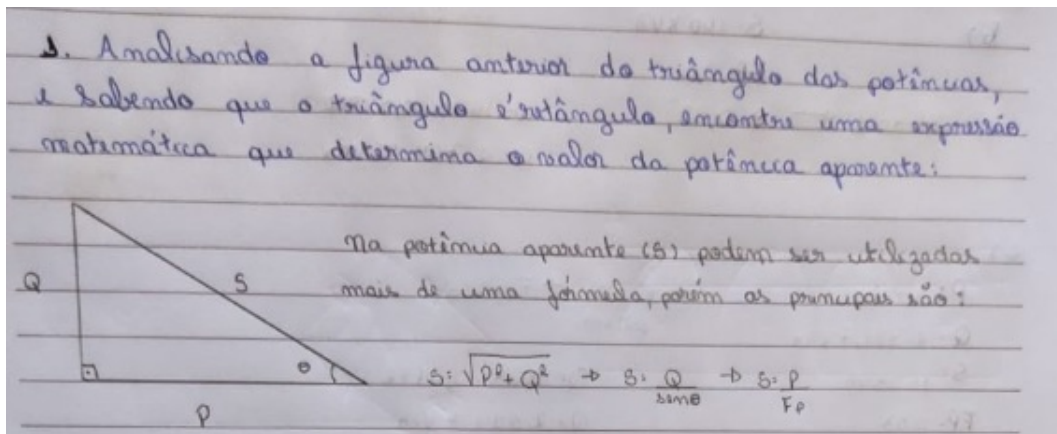 1. Analisando a figura anterior do triângulo das potências,
e sabendo que o triângulo é retângulo, encontre uma expressão
matemática que determina o valor da potência aparente:
Na potência aparente (S) podem ser utilizadas
mais de uma fórmula, porém as principais são:
Q
S
θ
P
S = √P² + Q² → S = Q/senθ → S = P/Fp